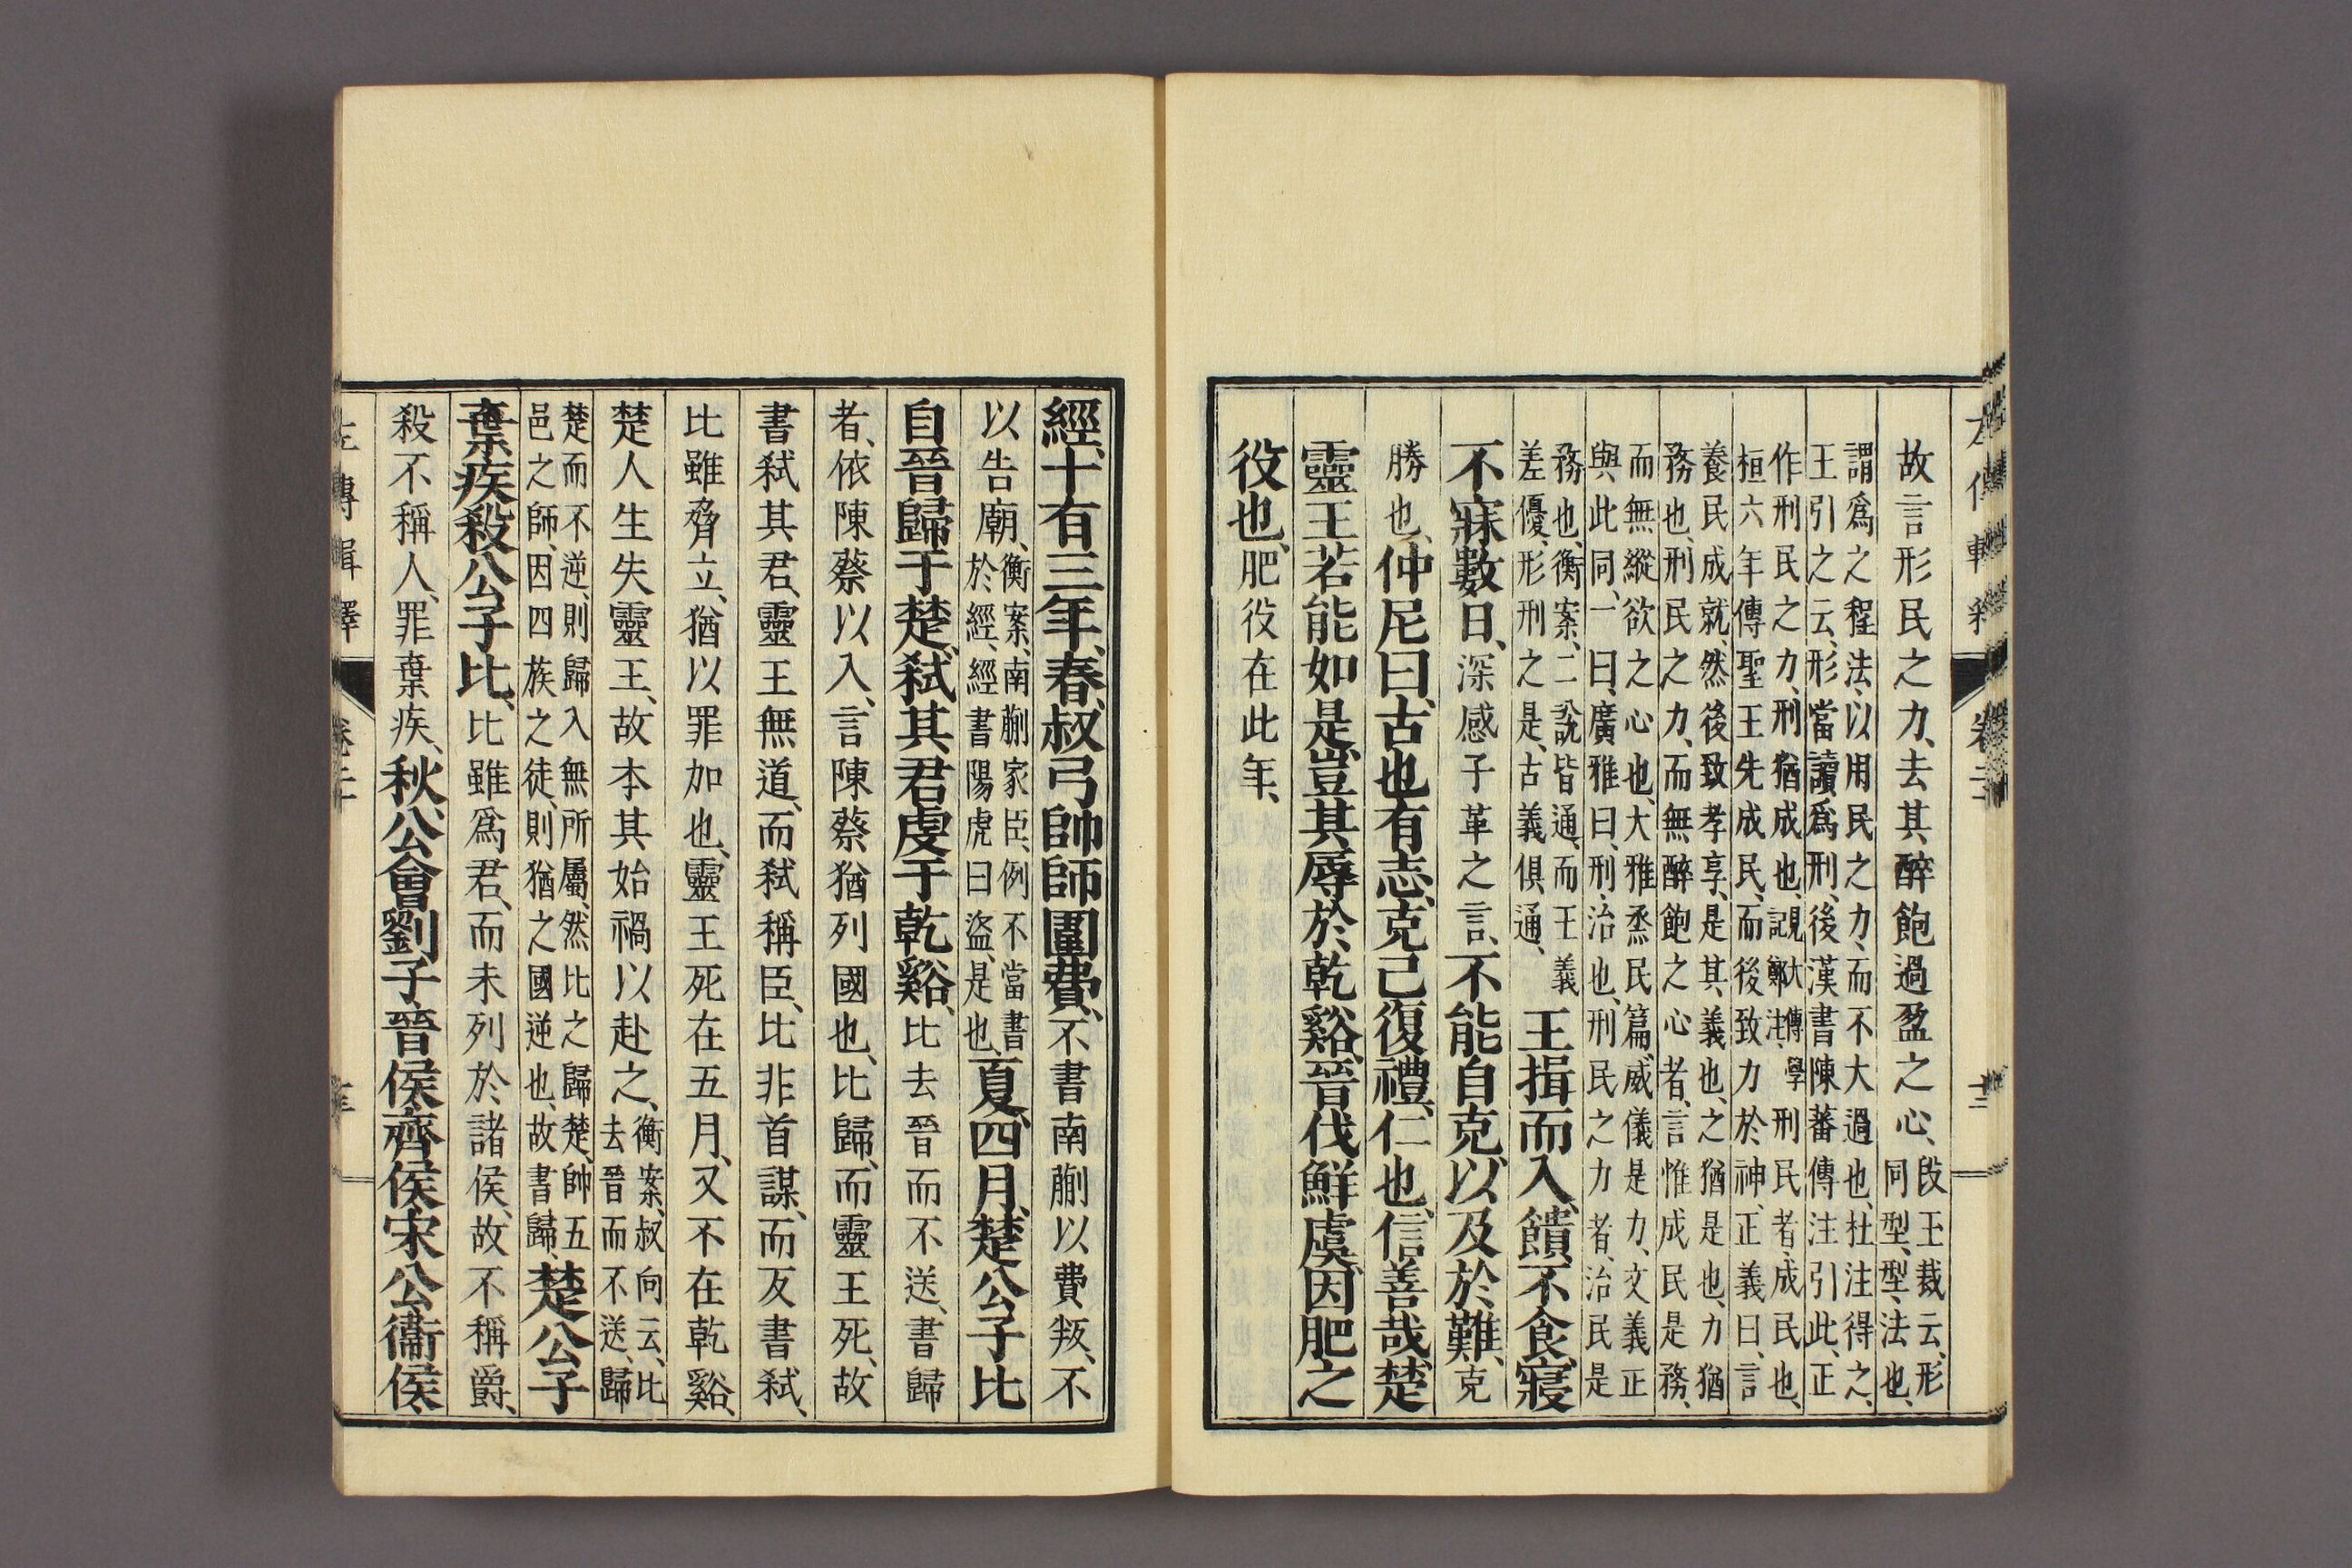 故言形民之力、去其醉飽過盈之心、段玉裁云、形同型、型、法也、
謂爲之程法、以用民之力、而不大過也、杜注得之、
王引之云、形當讀爲刑、後漢書陳蕃傳注引此、正
作刑民之力、刑猶成也、見大傳學記鄭注、刑民者、成民也、
桓六年傳聖王先成民、而後致力於神、正義曰、言
養民成就、然後致孝享、是其義也、之猶是也、力猶
務也、刑民之力、而無醉飽之心者、言惟成民是務、
而無縱欲之心也、大雅烝民篇、威儀是力、文義正
與此同、一曰、廣雅曰、刑、治也、刑民之力者、治民是
務也、衡案、二說皆通、而王義差優、形刑之是、古義俱通、王揖而入、饋不食、寢
不寐數日、深感子革之言、不能自克、以及於難、克
勝也、仲尼曰、古也有志、克己復禮、仁也、信善哉、楚
靈王若能如是、豈其辱於乾谿、晉伐鮮虞、因肥之
役也、肥役在此年、
經、十有三年、春、叔弓帥師圍費、不書南蒯以費叛、不
以告廟、衡案、南蒯家臣、例不當書於經、經書陽虎曰盜、是也、夏、四月、楚公子比
自晉歸于楚、弑其君虔于乾谿、比去晉而不送、書歸
者、依陳蔡以入、言陳蔡猶列國也、比歸、而靈王死、故
書弑其君、靈王無道、而弑稱臣、比非首謀、而反書弑、
比雖脅立、猶以罪加也、靈王死在五月、又不在乾谿、
楚人生失靈王、故本其始禍以赴之、衡案、叔向云、比去晉而不送、歸
楚而不逆、則歸入無所屬、然比之歸楚、帥五
邑之師、因四族之徒、則猶之國逆也、故書歸、楚公子
棄疾殺公子比、比雖爲君、而未列於諸侯、故不稱爵、
殺不稱人、罪棄疾、秋、公會劉子、晉侯、齊侯、宋公、衞侯、
左傳輯釋
卷二